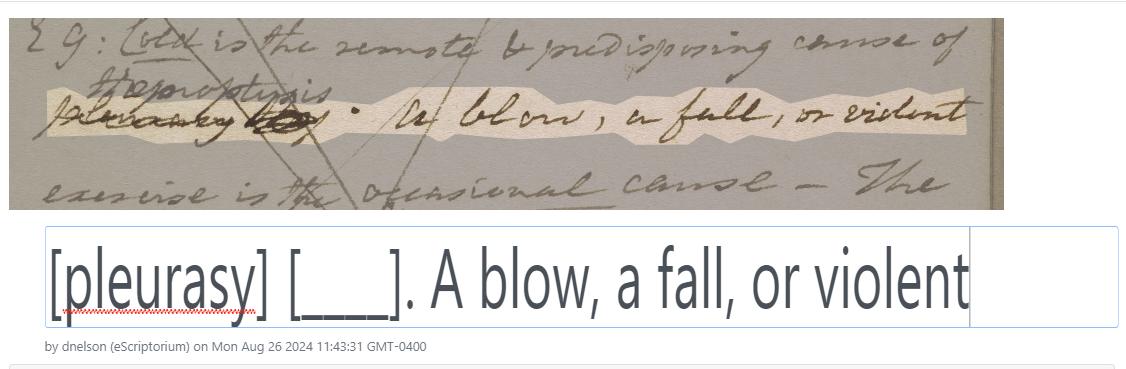 E G: Cold is the remote & predisposing cause of
Hæmoptysis
pleurasy . A blow, a fall, or violent
exercise is the occasional cause – The
[pleurasy] [____]. A blow, a fall, or violent
by dnelson (eScriptorium) on Mon Aug 26 2024 11:43:31 GMT-0400